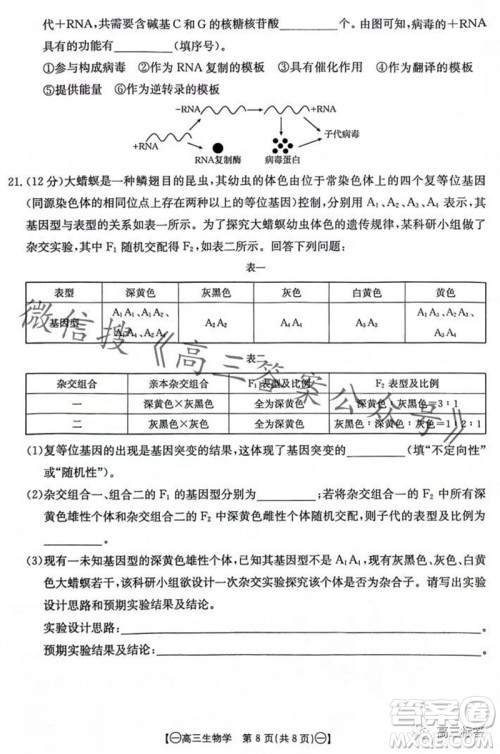 代+RNA,共需要含碱基C和G的核糖核苷酸____个。由图可知,病毒的+RNA
具有的功能有____(填序号)。
①参与构成病毒 ②作为RNA复制的模板 ③具有催化作用 ④作为翻译的模板
⑤储存遗传信息 ⑥作为逆转录的模板
-RNA
+RNA +RNA
子代病毒
RNA复制酶 病毒蛋白
21.(12分)大蜡螟是一种鳞翅目的昆虫,其幼虫的体色由位于常染色体上的四个复等位基因
(同源染色体的相同位点上存在两种以上的等位基因)控制,分别用A₁、A₂、A₃、A₄表示,其
基因型与表型的关系如表一所示。为了探究大蜡螟幼虫体色的遗传规律,某科研小组做了
杂交实验,其中F₁随机交配得F₂,如表二所示。回答下列问题:
表一
表型 深黄色 灰黑色 灰色 白黄色 黄色
基因型 A₁A₁、A₁A₂、A₁A₃、A₁A₄ A₂A₂ A₂A₃ A₃A₃ A₄A₄
表二
杂交组合 亲本杂交组合 F₁表型及比例 F₂表型及比例
一 深黄色×灰黑色 全为深黄色 深黄色∶灰黑色=3∶1
二 深黄色×灰黑色 全为灰色 灰黑色∶深黄色∶灰色=1∶1∶2
(1)复等位基因的出现是基因突变的结果,这体现了基因突变的____(填“不定向性”
或“随机性”)。
(2)杂交组合一、组合二的F₁的基因型分别为____;若让杂交组合一的F₂中所有深
黄色雄性个体和杂交组合二的F₂中深黄色雌性个体随机交配,则子代的表型及比例为
____。
(3)现有一未知基因型的深黄色雄性个体,已知其基因型不是A₁A₄,现有灰黑色、灰色、黄
色大蜡螟若干,该科研小组欲设计一次杂交实验探究其是否为杂合子。请写出实验
设计思路和预期实验结果及结论。
实验设计思路:____
预期实验结果及结论:____
微信搜《高三答案公众号》
高三生物学 第8页(共8页)
高三标答